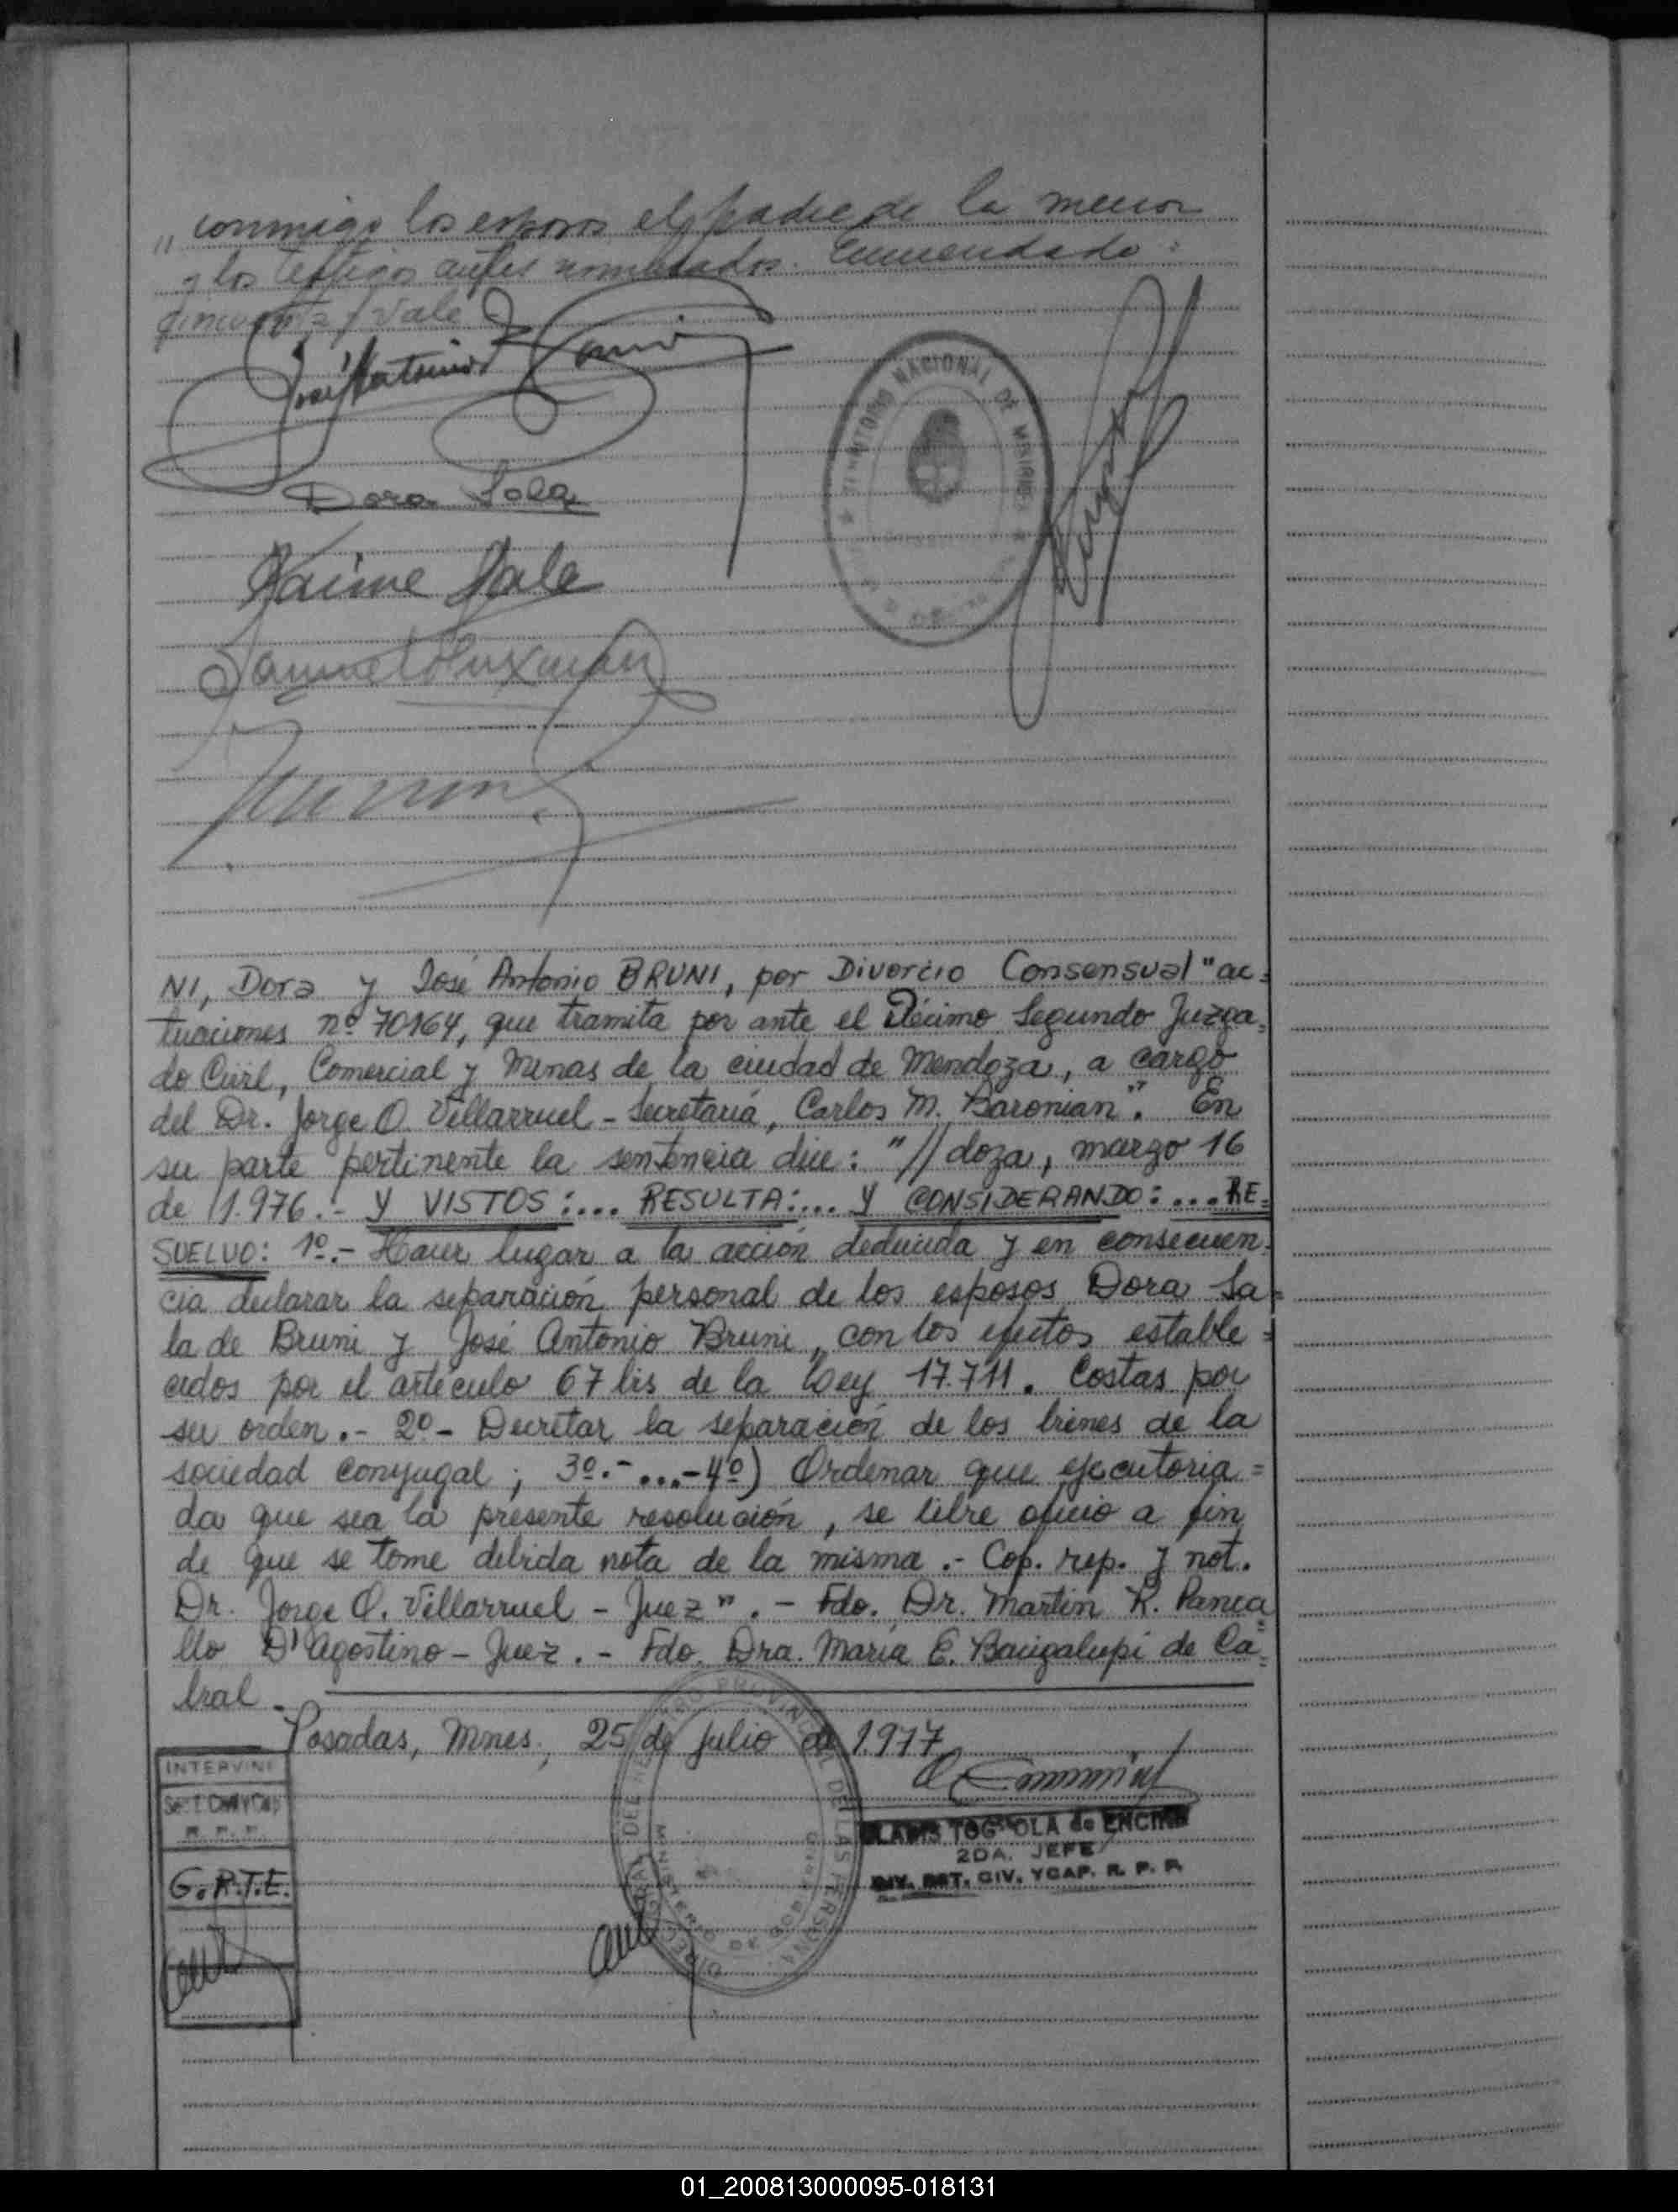 „ conmigo los esposos el padre de la menor
y los testigos antes nombrados. Enmendado:
cincuenta / Vale
José Antonio Bruni
Dora Sala
Jaime Sala
Samuel
TERRITORIO NACIONAL DE MISIONES
NI, Dora y José Antonio BRUNI, por Divorcio Consensual "ac=
tuaciones nº 70164, que tramita por ante el Décimo Segundo Juzga=
do Civil, Comercial y Minas de la ciudad de Mendoza, a cargo
del Dr. Jorge O. Villarruel - Secretaría, Carlos M. Baronian". En
su parte pertinente la sentencia dice: "//doza, marzo 16
de 1.976.- Y VISTOS:... RESULTA:... Y CONSIDERANDO:... RE=
SUELVO: 1º.- Hacer lugar a la acción deducida y en consecuen=
cia declarar la separación personal de los esposos Dora Sa=
la de Bruni y José Antonio Bruni, con los efectos estable=
cidos por el artículo 67 bis de la Ley 17.711. Costas por
su orden.- 2º- Decretar la separación de los bienes de la
sociedad conyugal; 3º.-...-4º) Ordenar que ejecutoria=
da que sea la presente resolución, se libre oficio a fin
de que se tome debida nota de la misma.- Cop. rep. y not.
Dr. Jorge O. Villarruel - Juez".- Fdo. Dr. Martin R. Panca
llo D'Agostino - Juez.- Fdo. Dra. María E. Bacigalupi de Ca=
bral.-
Posadas, Mnes., 25 de julio de 1.977
INTERVINE
R. P. P.
G.R.T.E.
DIRECCION GENERAL DEL REGISTRO PROVINCIAL DE LAS PERSONAS
MINISTERIO DE GOBIERNO
de ENCINA
2DA. JEFE
DIV. EST. CIV. YCAP. R. P. P.
01_200813000095-018131